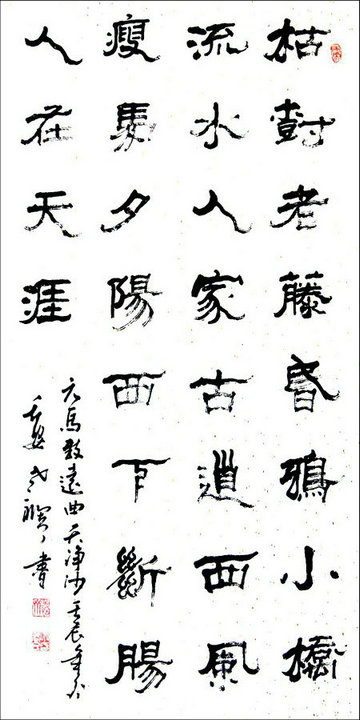 枯對老藤昏鴉小橋
流水人家古道西風
瘦馬夕陽西下斷腸
人在天涯
元馬致遠曲天净沙壬辰年
書